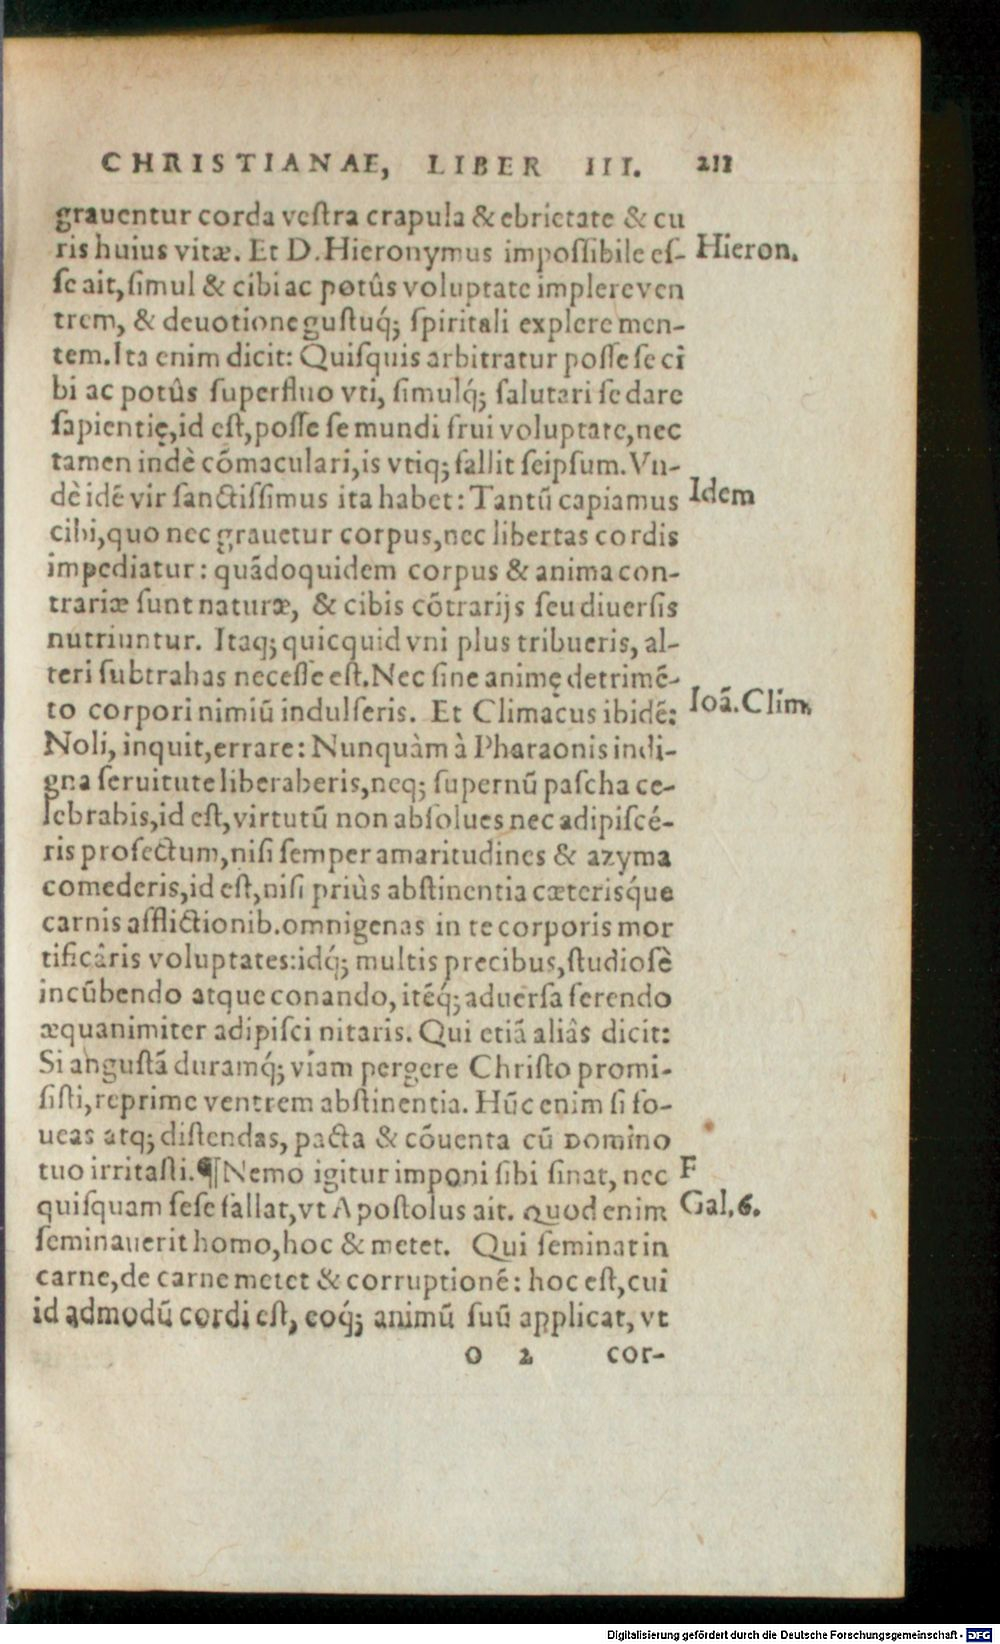 CHRISTIANAE, LIBER III. 211
grauentur corda vestra crapula & ebrietate & cu
ris huius vitæ. Et D. Hieronymus impossibile es- Hieron.
se ait, simul & cibi ac potûs voluptate implere ven
trem, & deuotione gustuq́; spiritali explere men-
tem. Ita enim dicit: Quisquis arbitratur posse se ci
bi ac potûs superfluo vti, simulq́; salutari se dare
sapientię, id est, posse se mundi frui voluptate, nec
tamen indè cōmaculari, is vtiq; fallit seipsum. Vn-
dè idē vir sanctissimus ita habet: Tantū capiamus Idem
cibi, quo nec grauetur corpus, nec libertas cordis
impediatur: quādoquidem corpus & anima con-
trariæ sunt naturæ, & cibis cōtrarijs seu diuersis
nutriuntur. Itaq; quicquid vni plus tribueris, al-
teri subtrahas necesse est. Nec sine animę detrimē-
to corpori nimiū indulseris. Et Climacus ibidē: Ioā. Clim.
Noli, inquit, errare: Nunquàm à Pharaonis indi-
gna seruitute liberaberis, neq; supernū pascha ce-
lebrabis, id est, virtutū non absolues nec adipiscé-
ris profectum, nisi semper amaritudines & azyma
comederis, id est, nisi priùs abstinentia cæterisq́ue
carnis afflictionib. omnigenas in te corporis mor
tificâris voluptates: idq́; multis precibus, studiosè
incūbendo atque conando, itēq́; aduersa ferendo
æquanimiter adipisci nitaris. Qui etiā aliâs dicit:
Si angustā duramq́; viam pergere Christo promi-
sisti, reprime ventrem abstinentia. Hūc enim si fo-
ueas atq; distendas, pacta & cōuenta cū Domino
tuo irritasti. ¶ Nemo igitur imponi sibi sinat, nec F
quisquam sese fallat, vt Apostolus ait. quod enim Gal. 6.
seminauerit homo, hoc & metet. Qui seminat in
carne, de carne metet & corruptionē: hoc est, cui
id admodū cordi est, eoq́; animū suū applicat, vt
O 2 cor-
Digitalisierung gefördert durch die Deutsche Forschungsgemeinschaft - DFG